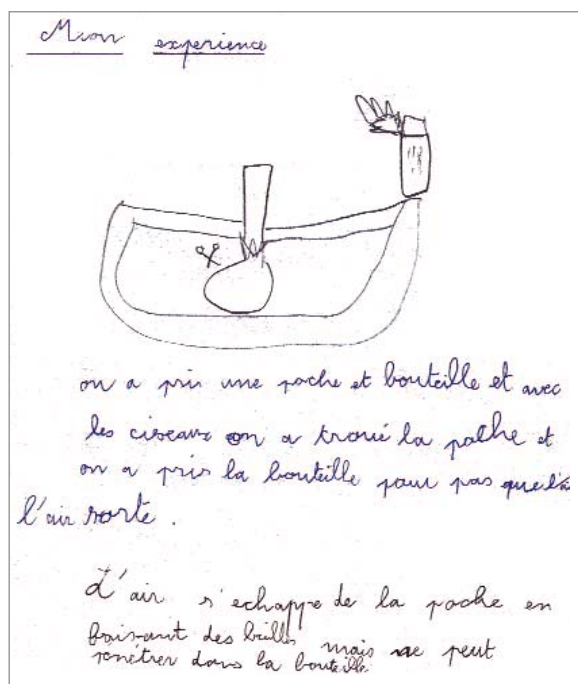 Mon experience
on a pris une poche et bouteille et avec
les ciseaux on a troué la pothe et
on a pris la bouteille pour pas que
l'air sorte.
L'air s'echappe de la poche en
faisant des bulles mais ne peut
pénétrer dans la bouteille